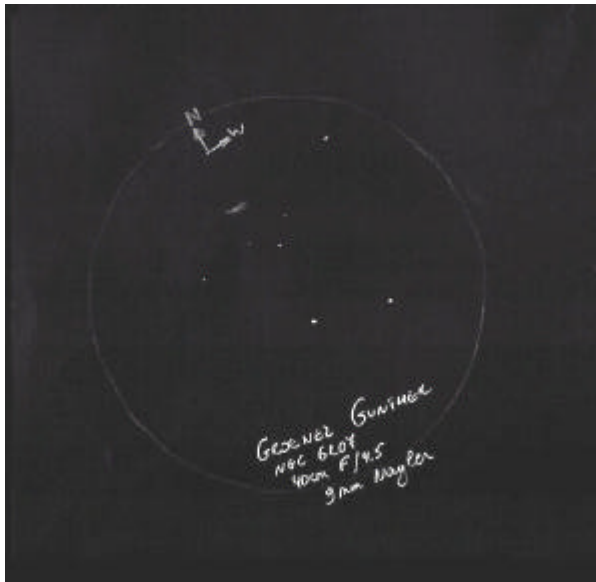 N
W
GUNTHER
NGC 6207
40cm F/4.5
9mm Nagler